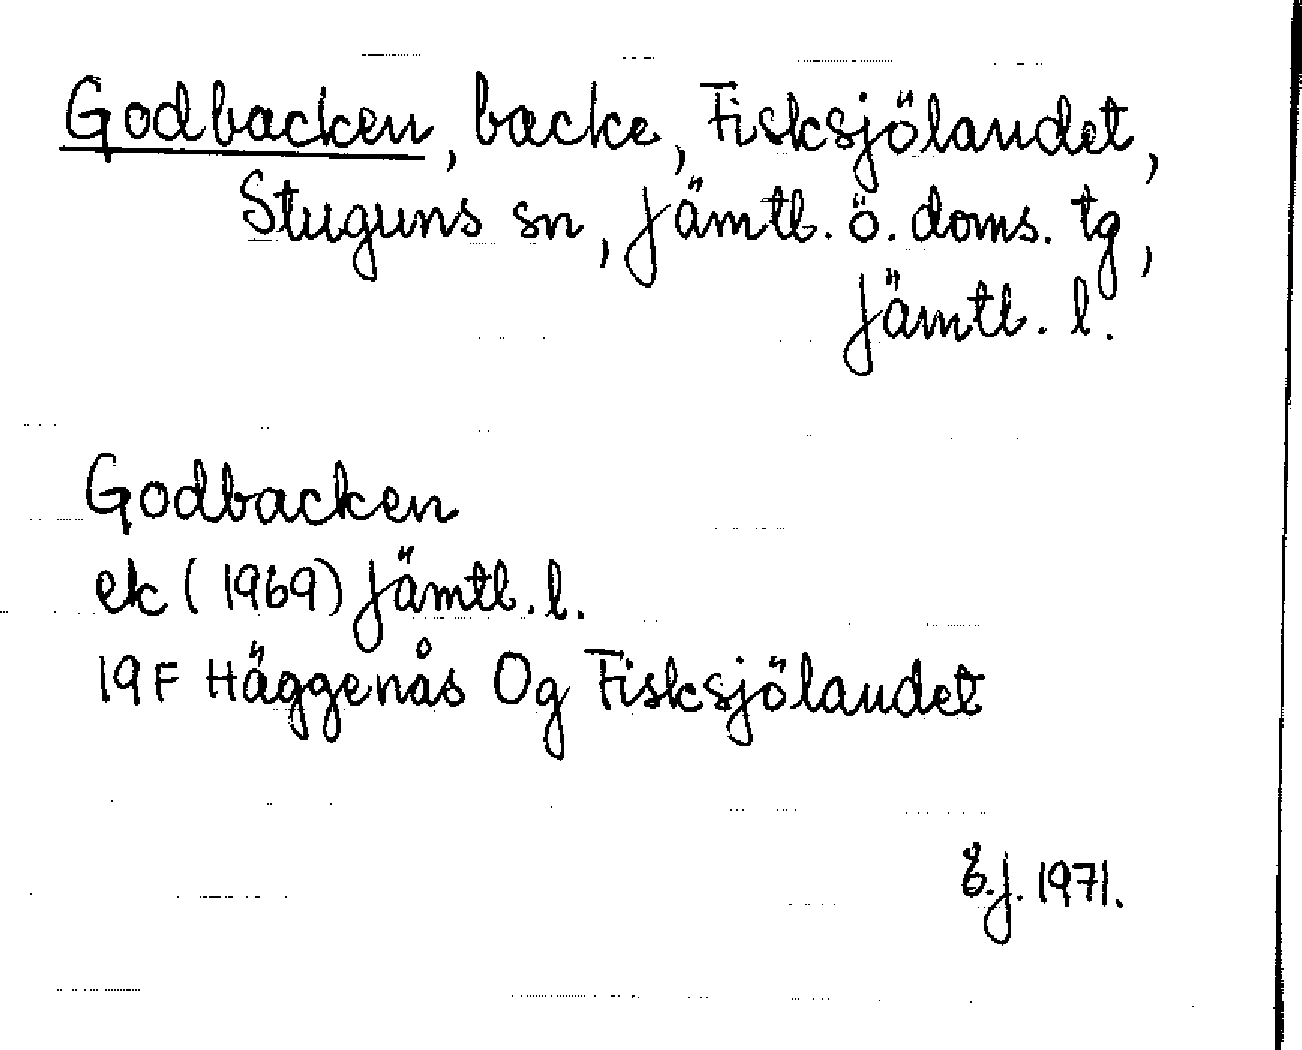 Godbacken, backe, Fisksjölandet,
Stuguns sn, Jämtl. ö. doms. tg,
Jämtl. l.
Godbacken
ek (1969) Jämtl. l.
19F Häggenås Og Fisksjölandet
E.J. 1971.